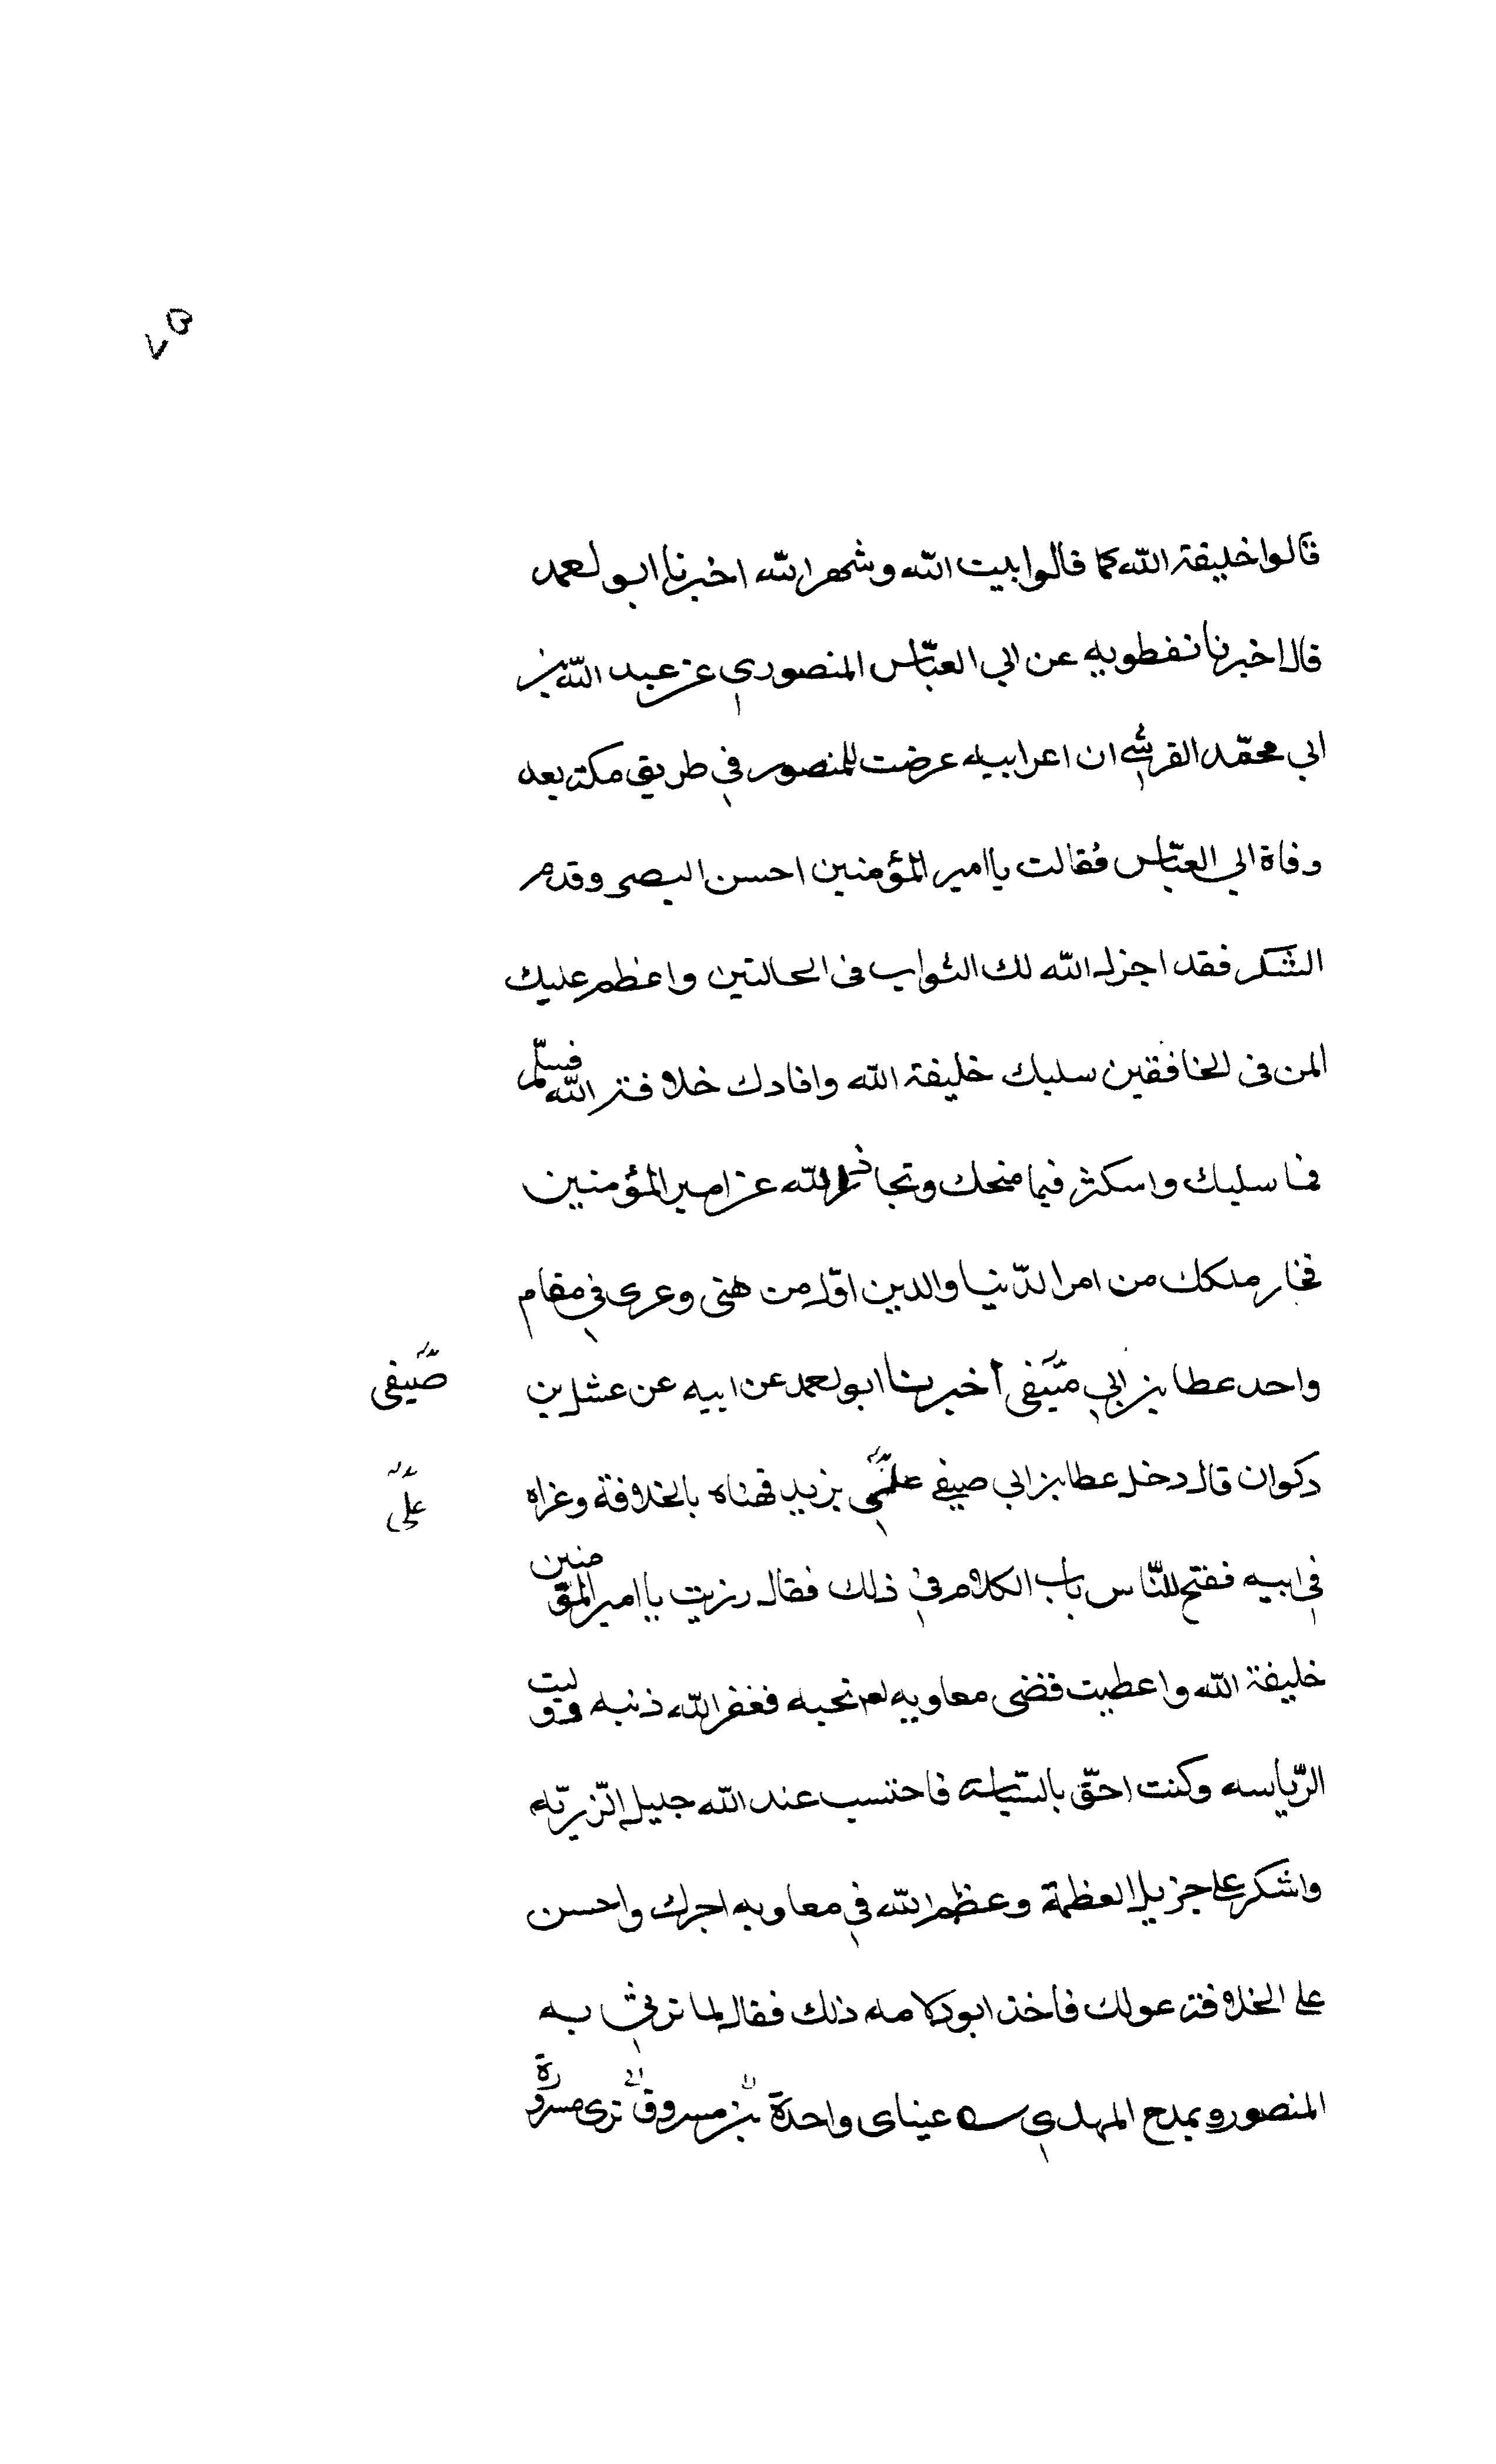 ٥٧
قالوا خليفة الله كما قالوا بيت الله وشهر الله اخبرنا ابو احمد
قال اخبرنا نفطويه عن ابي العبّاس المنصوري عن عبد الله بن
ابي محمّد القرشي ان اعرابيه عرضت للمنصور في طريق مكة بعد
وفاة ابي العبّاس فقالت يا امير المؤمنين احسن الصبر وقدم
الشكر فقد اجزل الله لك الثواب في الحالتين واعظم عليك
المن في الخافقين سلبك خليفة الله وافادك خلافة الله فسلّم
فما سلبك واسكثر فيما منحك وتجاوز الله عن امير المؤمنين
فخار ملكك من امر الدّنيا والدين اوّل من هنى وعزى في مقام
واحد عطا بن ابي صيفى أخبرنا ابو احمد عن ابيه عن عشل بن
صيفى
دكوان قال دخل عطا بن ابي صيفي على يزيد فهناه بالخلافة وعزاه
على
في ابيه ففتح للنّاس باب الكلام في ذلك فقال رزيت يا امير المؤمنين
خليفة الله واعطيت قضى معاويه نحبه فغفر الله ذنبه ووليت
الرّياسه وكنت احقّ بالسّياسة فاحتسب عند الله جليل الرّزيّه
واشكر على جزيل العظمة وعظم الله في معاويه اجرك واحسن
على الخلافة عولك فاخذ ابو دلامه ذلك فقال لما ترثي به
المنصور ويمدح المهدي عيناى واحدة ترى مسرورة